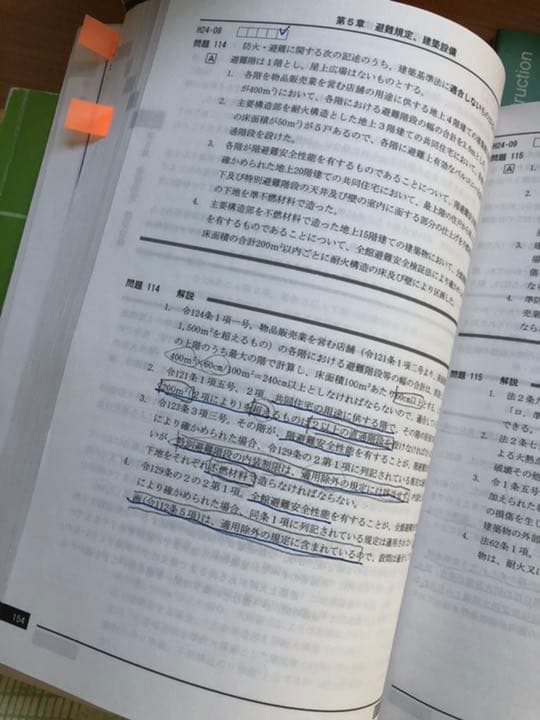 第5章 避難規定、建築設備
H24-08
問題 114 防火・避難に関する次の記述のうち、建築基準法に適合しないものは
A 避難階は1階とし、屋上広場はないものとする。
1. 各階を物品販売業を営む店舗の用途に供する地上4階建ての
が400㎡)において、各階における避難階段の幅の合計を
2. 主要構造部を耐火構造とした地上3階建ての共同住宅において、
の床面積が50㎡)が5戸あるので、各階に避難上有効なバルコニー
通階段を設けた。
3. 各階が階避難安全性能を有するものであることについて、階避難
確かめられた地上20階建ての共同住宅において、最上階の住戸から
下及び特別避難階段の天井及び壁の室内に面する部分の仕上げを
の下地を準不燃材料で造った。
4. 主要構造部を不燃材料で造った地上15階建ての建築物において、
を有するものであることについて、全館避難安全検証法により確か
床面積の合計200㎡以内ごとに耐火構造の床及び壁により区画した。
問題 114 解説
1. 令124条1項一号。物品販売業を営む店舗(令121条1項二号より、
1,500㎡を超えるもの)の各階における避難階段等の幅の合計は、
の上階のうち最大の階で計算し、床面積100㎡あたり60cm以上
400㎡×60cm/100㎡=240cm以上としなければならないので、適合
2. 令121条1項五号、2項。共同住宅の用途に供する階で、その階の
200㎡(2項により)を超えるものは2以上の直通階段を設けなければ
3. 令123条3項三号。その階が、階避難安全性能を有することが、
により確かめられた場合、令129条の2第1項に列記されている規定
いが、特別避難階段の内装制限は、適用除外の規定には該当せず
下地をそれぞれ不燃材料で造らなければならない。
4. 令129条の2の2第1項。全館避難安全性能を有することが、全館
により確かめられた場合、同条1項に列記されている規定は適用されな
画(令112条5項)は、適用除外の規定に含まれているので、設問は適合
154
H24-09
問題 115
A
1.
2.
3.
4.
問題 115 解説
1. 法2条
「ロ.
できる。
2. 法2条七
よる火熱が
破壊その他
3. 令1条五号
加えられた
の損傷を生じ
建築物の外部
4. 法62条1項。
物は、耐火又
ruction